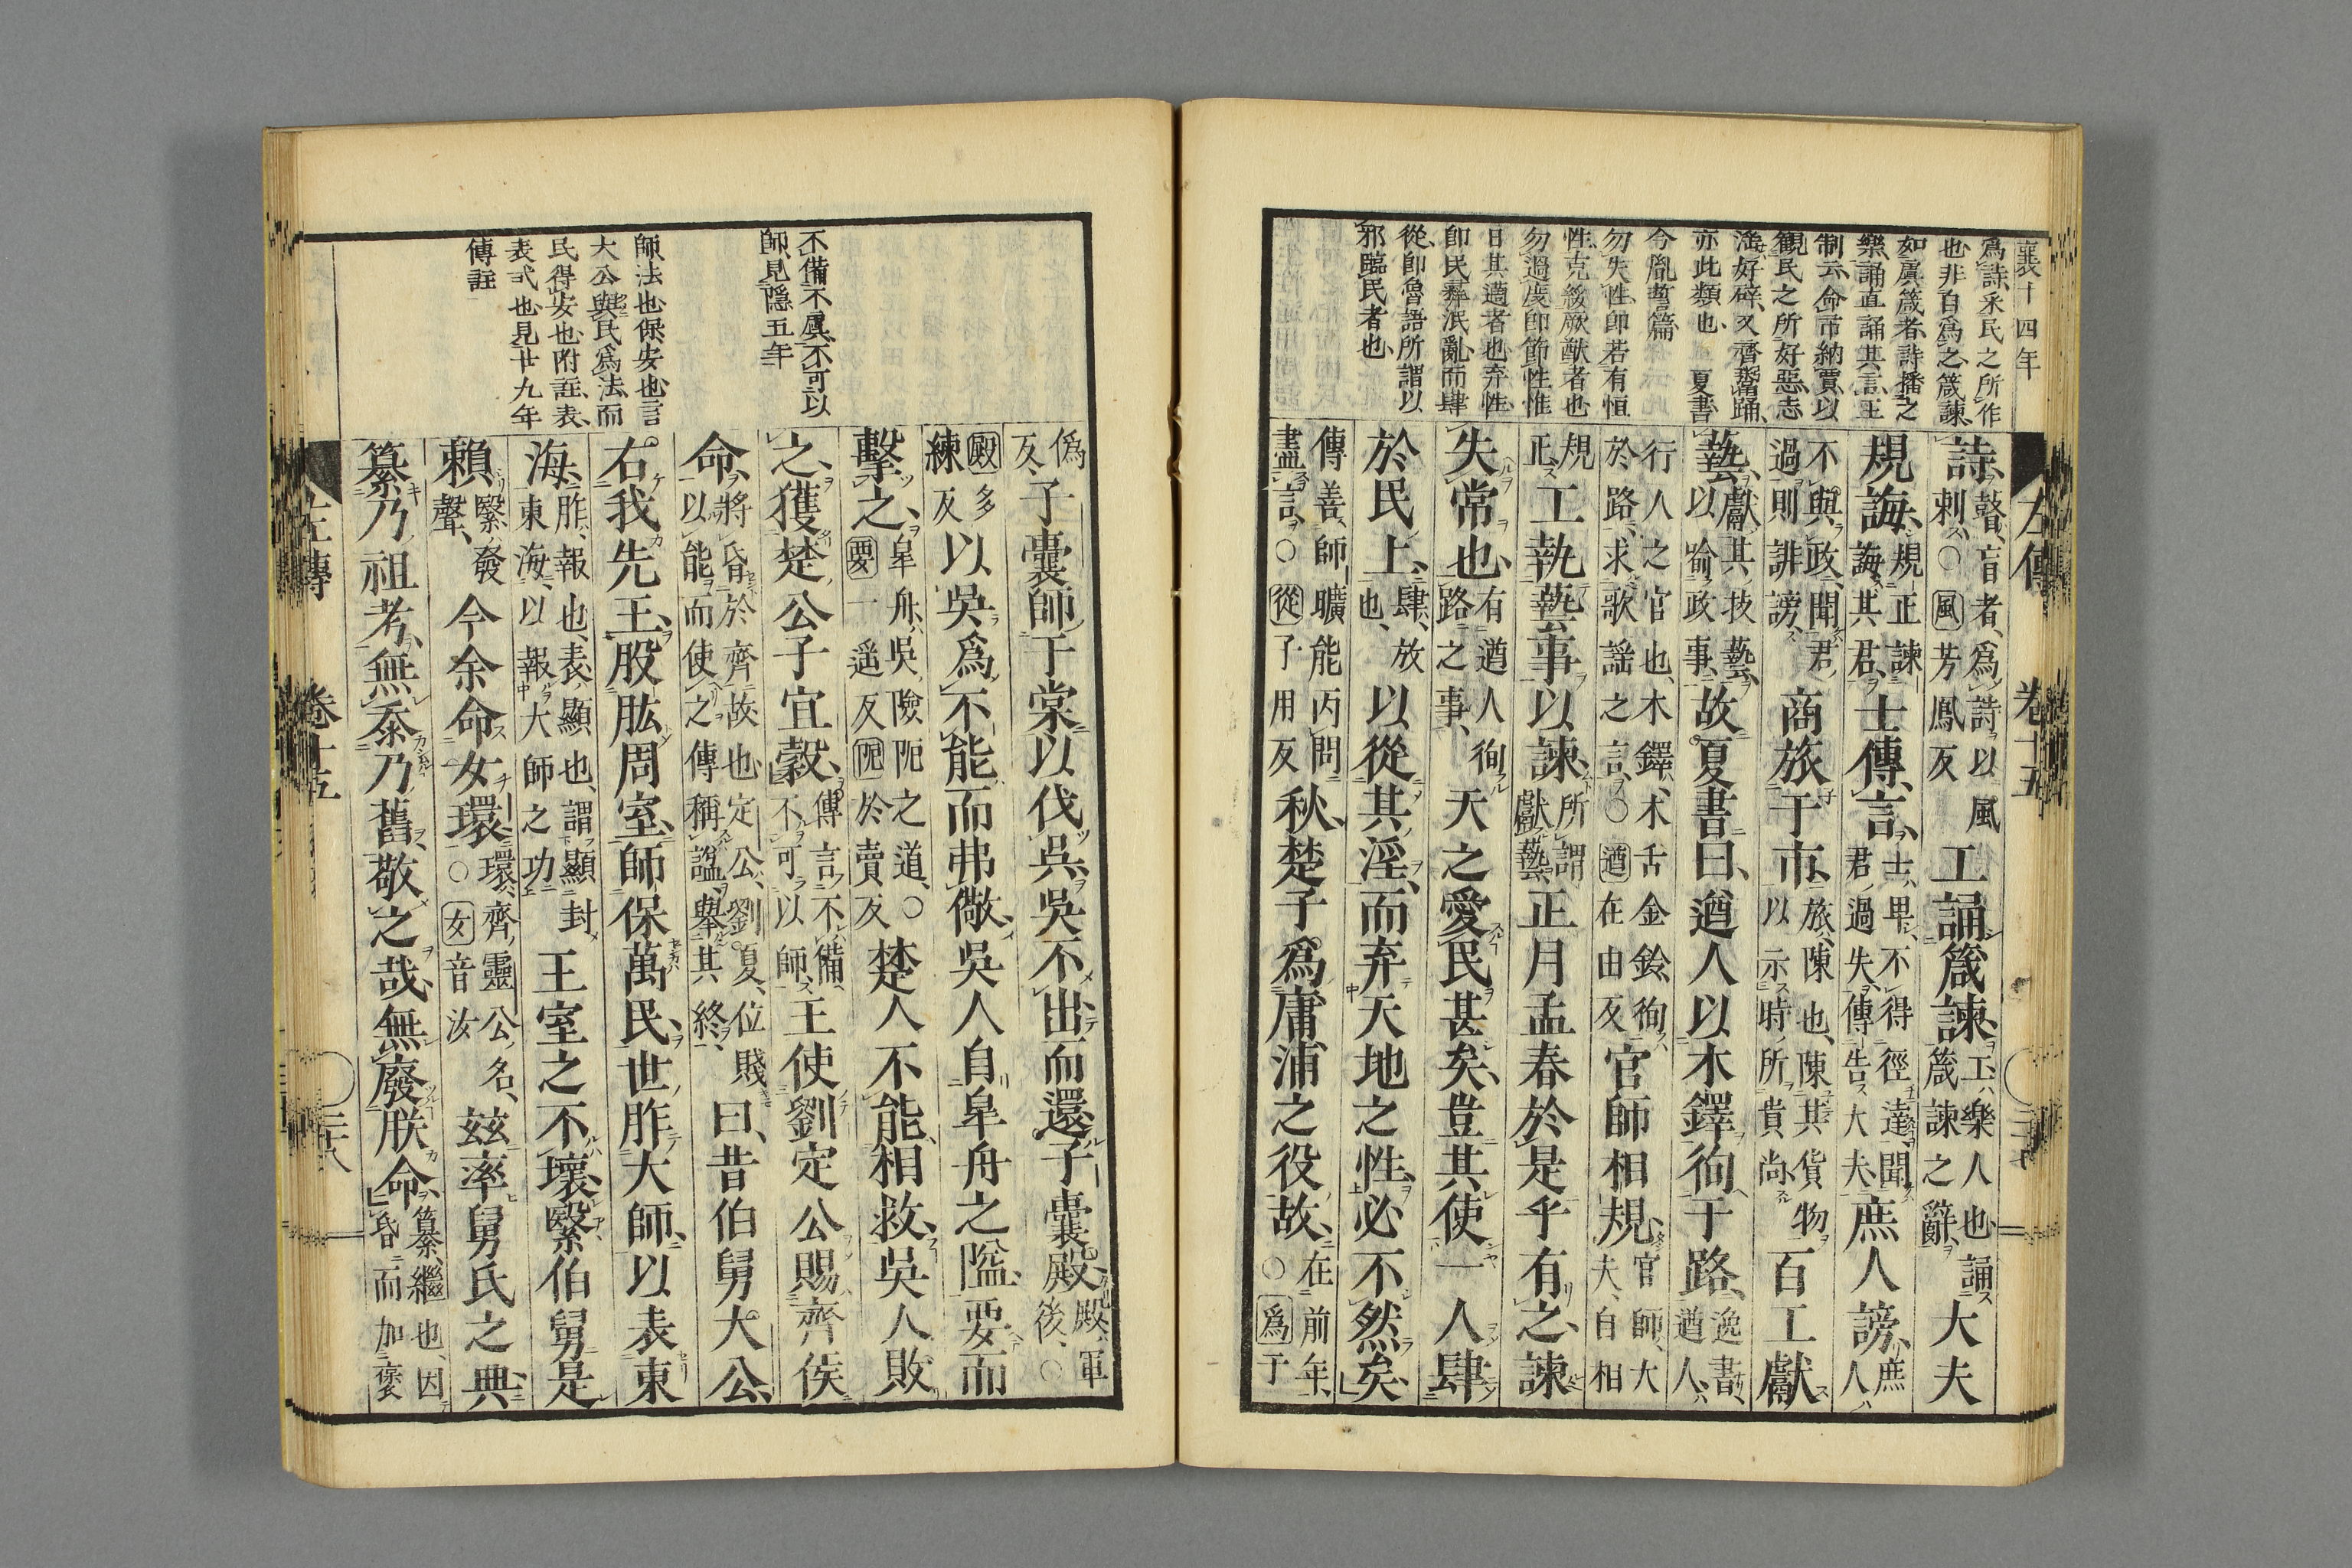 襄十四年
爲詩、釆民之所作
也、非自爲之箴諫、
如虞箴者、詩播之
樂、誦直誦其言、王
制云、命市納賈、以
觀民之所好惡、志
淫好辟、又齊鬻踊、
亦此類也、 夏書
今胤誓篇
勿失性、即若有恒
性克綏厥猷者也
勿過度即節性惟
日其邁者也弃性、
即民彝泯亂、而肆
從、即魯語所謂以
邪臨民者也、
左傳 卷十五
詩、瞽、盲者、爲詩以風刺、○風芳鳳反工誦箴諫、工、樂人也、誦箴諫之辭、大夫
規誨、規正諫誨其君、士傳言、士、卑、不得徑達聞君過失傳告大夫、庶人謗、庶人、
不與政、聞君過則誹謗、商旅于市、旅、陳也、陳其貨物以示時所貴尚、百工獻
藝、獻其技藝以喻政事、故夏書曰、遒人以木鐸徇于路、逸書、遒人、
行人之官也、木鐸、木舌金鈴、徇於路、求歌謡之言、○遒在由反官師相規、官師、大夫、自相
規正工執藝事以諫、所謂獻藝、正月孟春於是乎有之、諫
失常也、有遒人徇路之事、天之愛民甚矣、豈其使一人肆
於民上、肆、放也、以從其淫、而弃天地之性、必不然矣、
傳善師曠能因問盡言、○從子用反秋、楚子爲庸浦之役故、在前年、○爲于
不備不虞、不可以
師、見隱五年
師、法也、保、安也、言
大公與民爲法、而
民得安也、附註、表、
表式也、見廿九年
傳註
僞反、子囊師于棠以伐吳、吳不出而還、子囊殿、殿、軍後、○
殿多練反以吳爲不能而弗儆、吳人自皐舟之隘、要而
擊之、皐舟、吳險阨之道、○要一遥反阨於賣反楚人不能相救、吳人敗
之、獲楚公子宜穀、傳言不備不可以師、王使劉定公賜齊侯
命、將昏於齊故也、定公、劉夏、位賤以能而使之、傳稱諡、舉其終、曰、昔伯舅大公、
右我先王、股肱周室、師保萬民、世胙大師、以表東
海、胙、報也、表、顯也、謂顯封東海、以報大師之功、王室之不壞、繄伯舅是
賴、繄、發聲、今余命女環、環、齊靈公名、○女音汝茲率舅氏之典、
纂乃祖考、無忝乃舊、敬之哉、無廢朕命、纂、繼也、因昏而加褒
左傳 卷十五